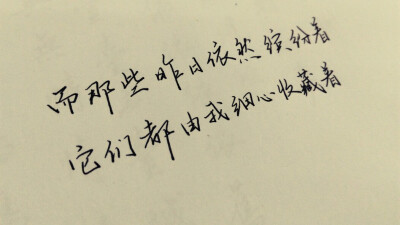 而那些昨日依然缤纷着
它们都由我细心收藏着